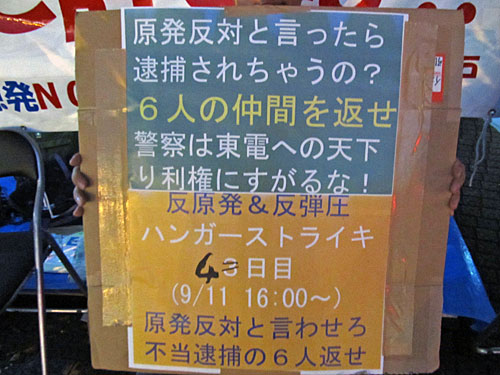 原発反対と言ったら
逮捕されちゃうの？
６人の仲間を返せ
警察は東電への天下
り利権にすがるな！
反原発＆反弾圧
ハンガーストライキ
4日目
(9/11 16:00～)
原発反対と言わせろ
不当逮捕の６人返せ
発NO